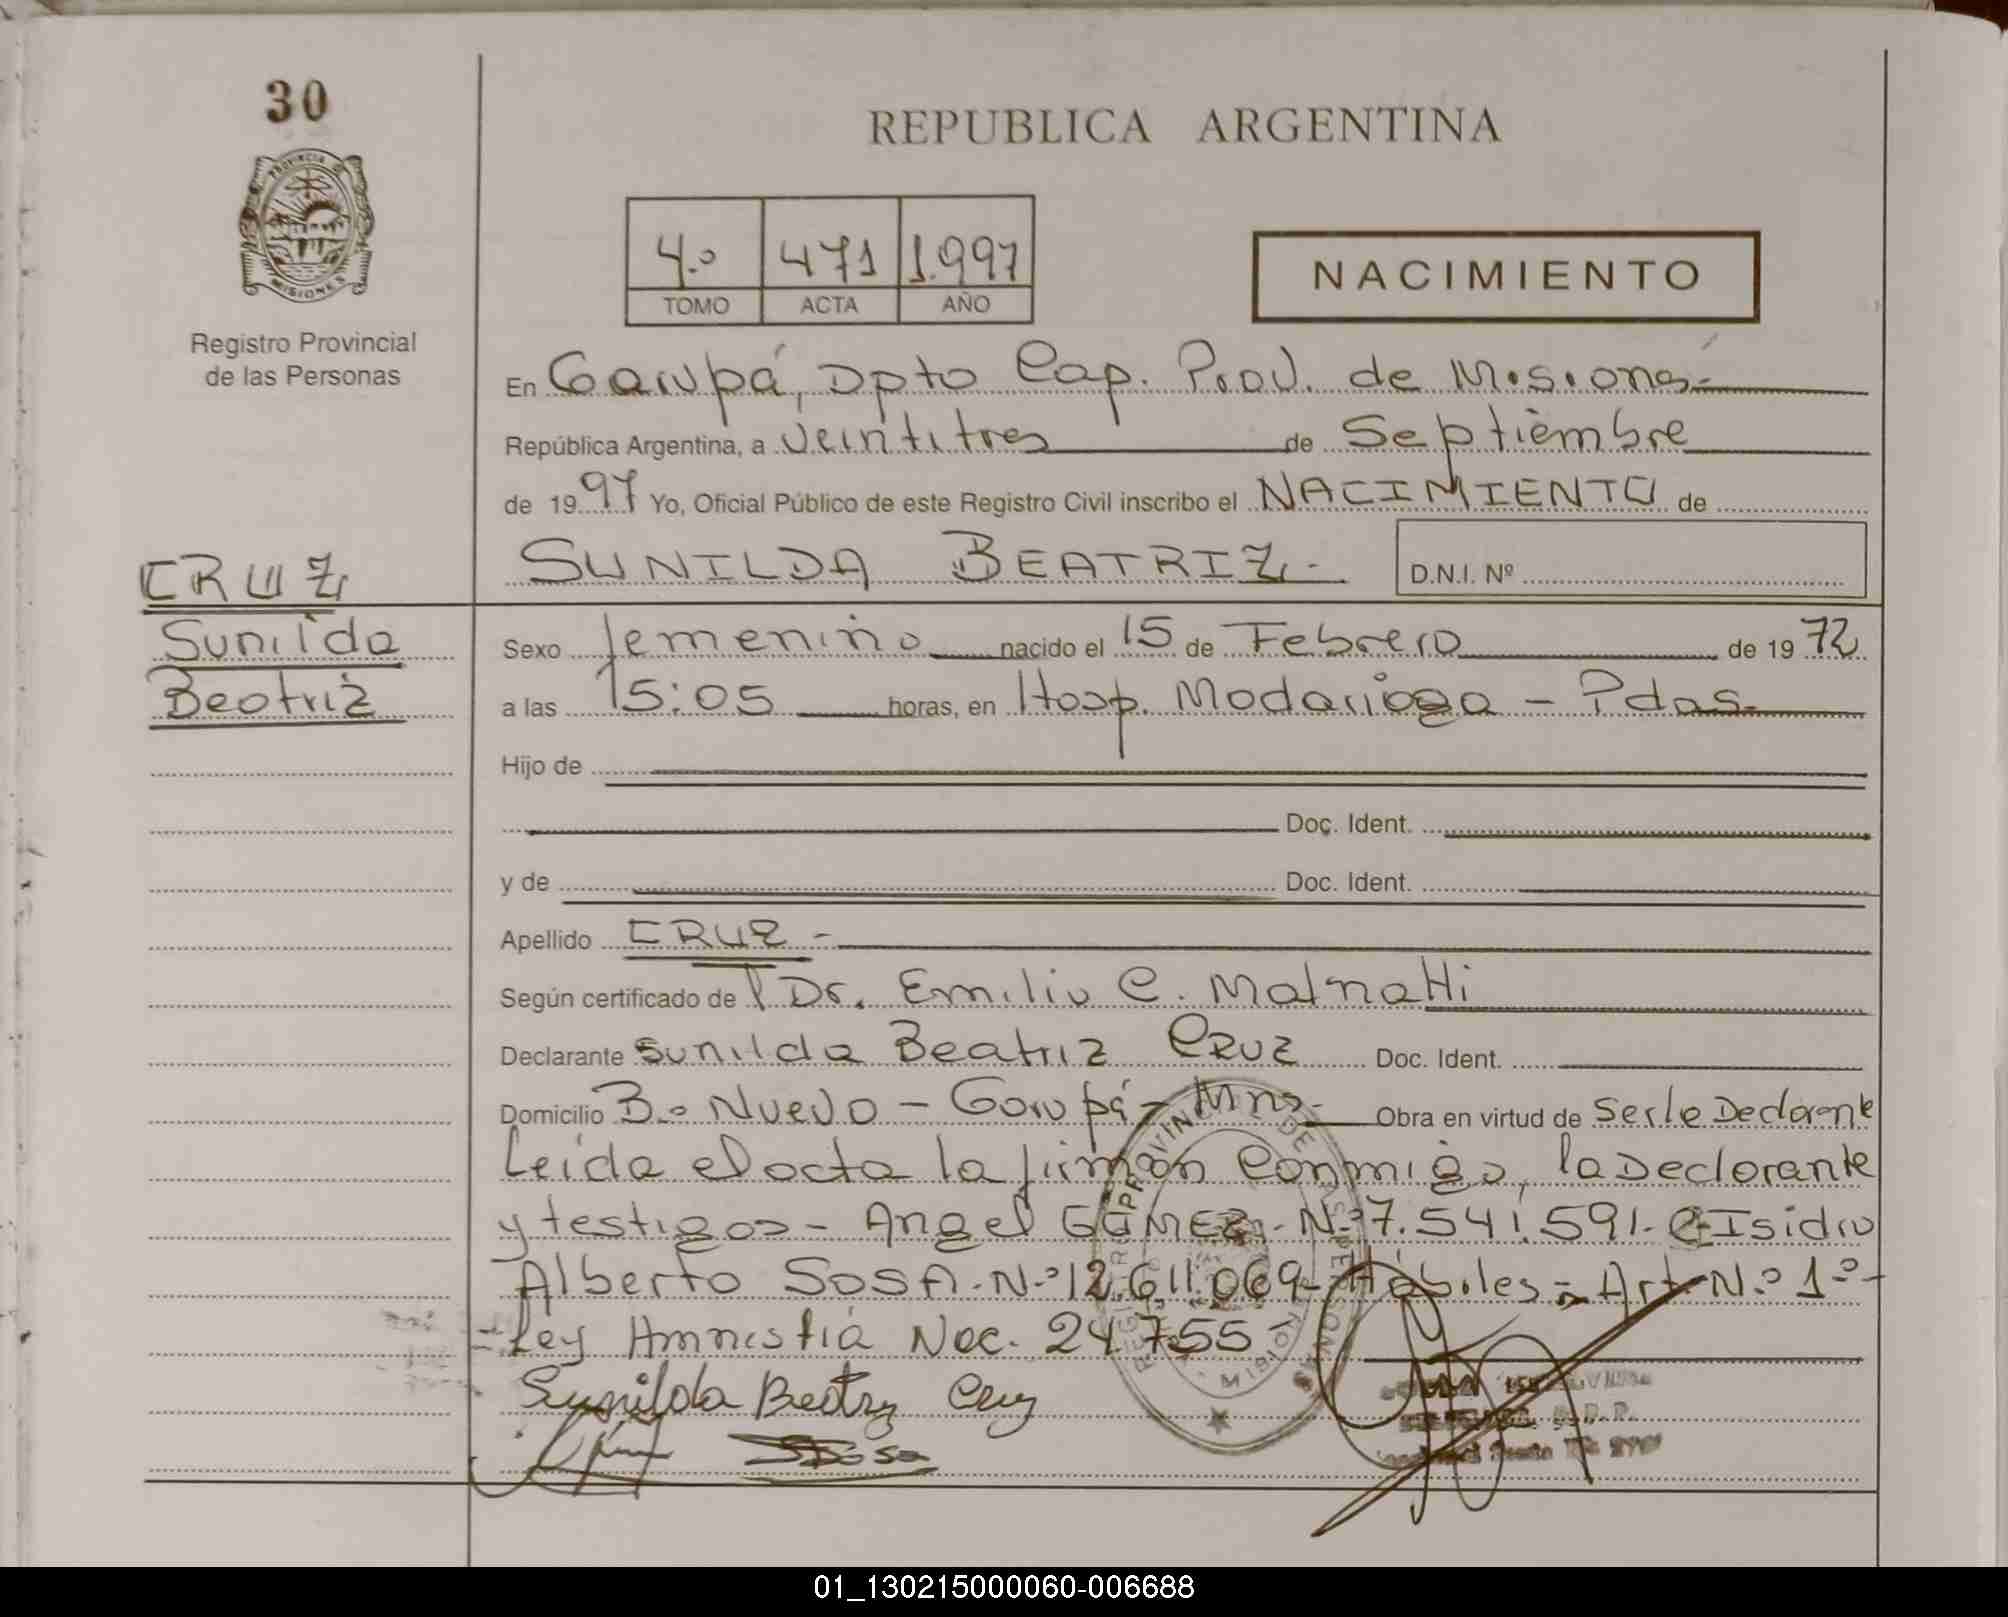 30
REPUBLICA ARGENTINA
PROVINCIA
MISIONES
4.º 471 1.997
TOMO ACTA AÑO
NACIMIENTO
Registro Provincial
de las Personas
En Garupá, Dpto Cap. Prov. de Misiones-
República Argentina, a veintitres de Septiembre
de 1997 Yo, Oficial Público de este Registro Civil inscribo el NACIMIENTO de
CRUZ
SUNILDA BEATRIZ.-
D.N.I. Nº
Sunilda
Beatriz
Sexo femenino nacido el 15 de Febrero de 1972
a las 15:05 horas, en Hosp. Madariaga - Pdas.
Hijo de
Doc. Ident.
y de Doc. Ident.
Apellido CRUZ -
Según certificado de Dr. Emilio C. Malnatti
Declarante Sunilda Beatriz CRUZ Doc. Ident.
Domicilio B.º Nuevo - Garupá - Mns- Obra en virtud de Serle Declarante
Leida el acta la firman Conmigo, la Declarante
y testigos - Angel GOMEZ - N.º 7.541.591. e Isidro
Alberto SOSA. N.º 12.611.069 - Hábiles = Art. N.º 1º-
- Ley Amnistia Nac. 24.755 -
Sunilda Beatriz Cruz
Sosa
01_130215000060-006688